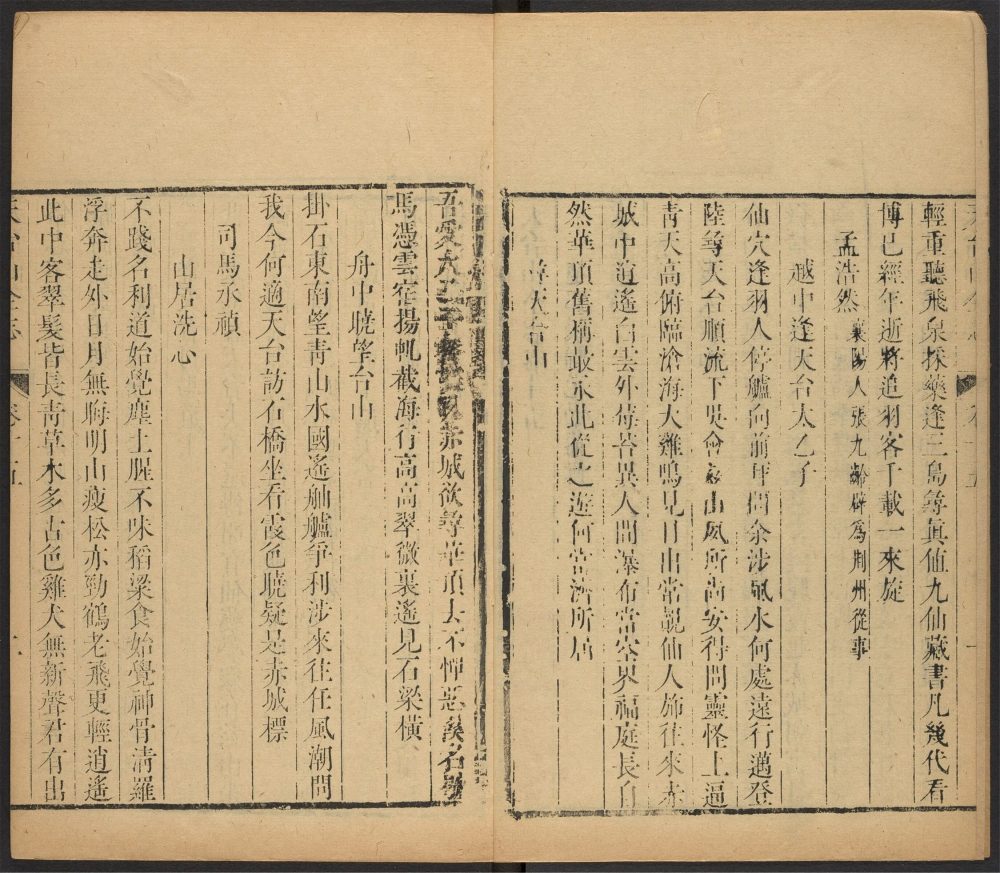 天台山全志 卷十五
輕重聽飛泉採藥逢三島尋真值九仙藏書凡幾代看
博已經年逝將追羽客千載一來旋
孟浩然 襄陽人張九齡辟為荆州從事
越中逢天台太乙子
仙穴逢羽人停艫向前拜問余涉風水何處遠行邁登
陸尋天台順流下吳會茲山夙所尚安得問靈怪上逼
青天高俯臨滄海大雞鳴見日出常覿仙人旆往來赤
城中逍遙白雲外莓苔異人間瀑布當空界福庭長自
然華頂舊稱最永此從之遊何當濟所屆
尋天台山
吾愛太乙子 赤城欲尋華頂去不憚惡溪名歇
馬憑雲宿揚帆截海行高高翠微裏遙見石梁橫
舟中曉望台山
掛石東南望青山水國遙舳艫爭利涉來往任風潮問
我今何適天台訪石橋坐看霞色曉疑是赤城標
司馬承禎
山居洗心
不踐名利道始覺塵土腥不味稻粱食始覺神骨清羅
浮奔走外日月無晦明山瘦松亦勁鶴老飛更輕逍遙
此中客翠髮皆長青草木多古色雞犬無新聲君有出
天台山全志 卷十五